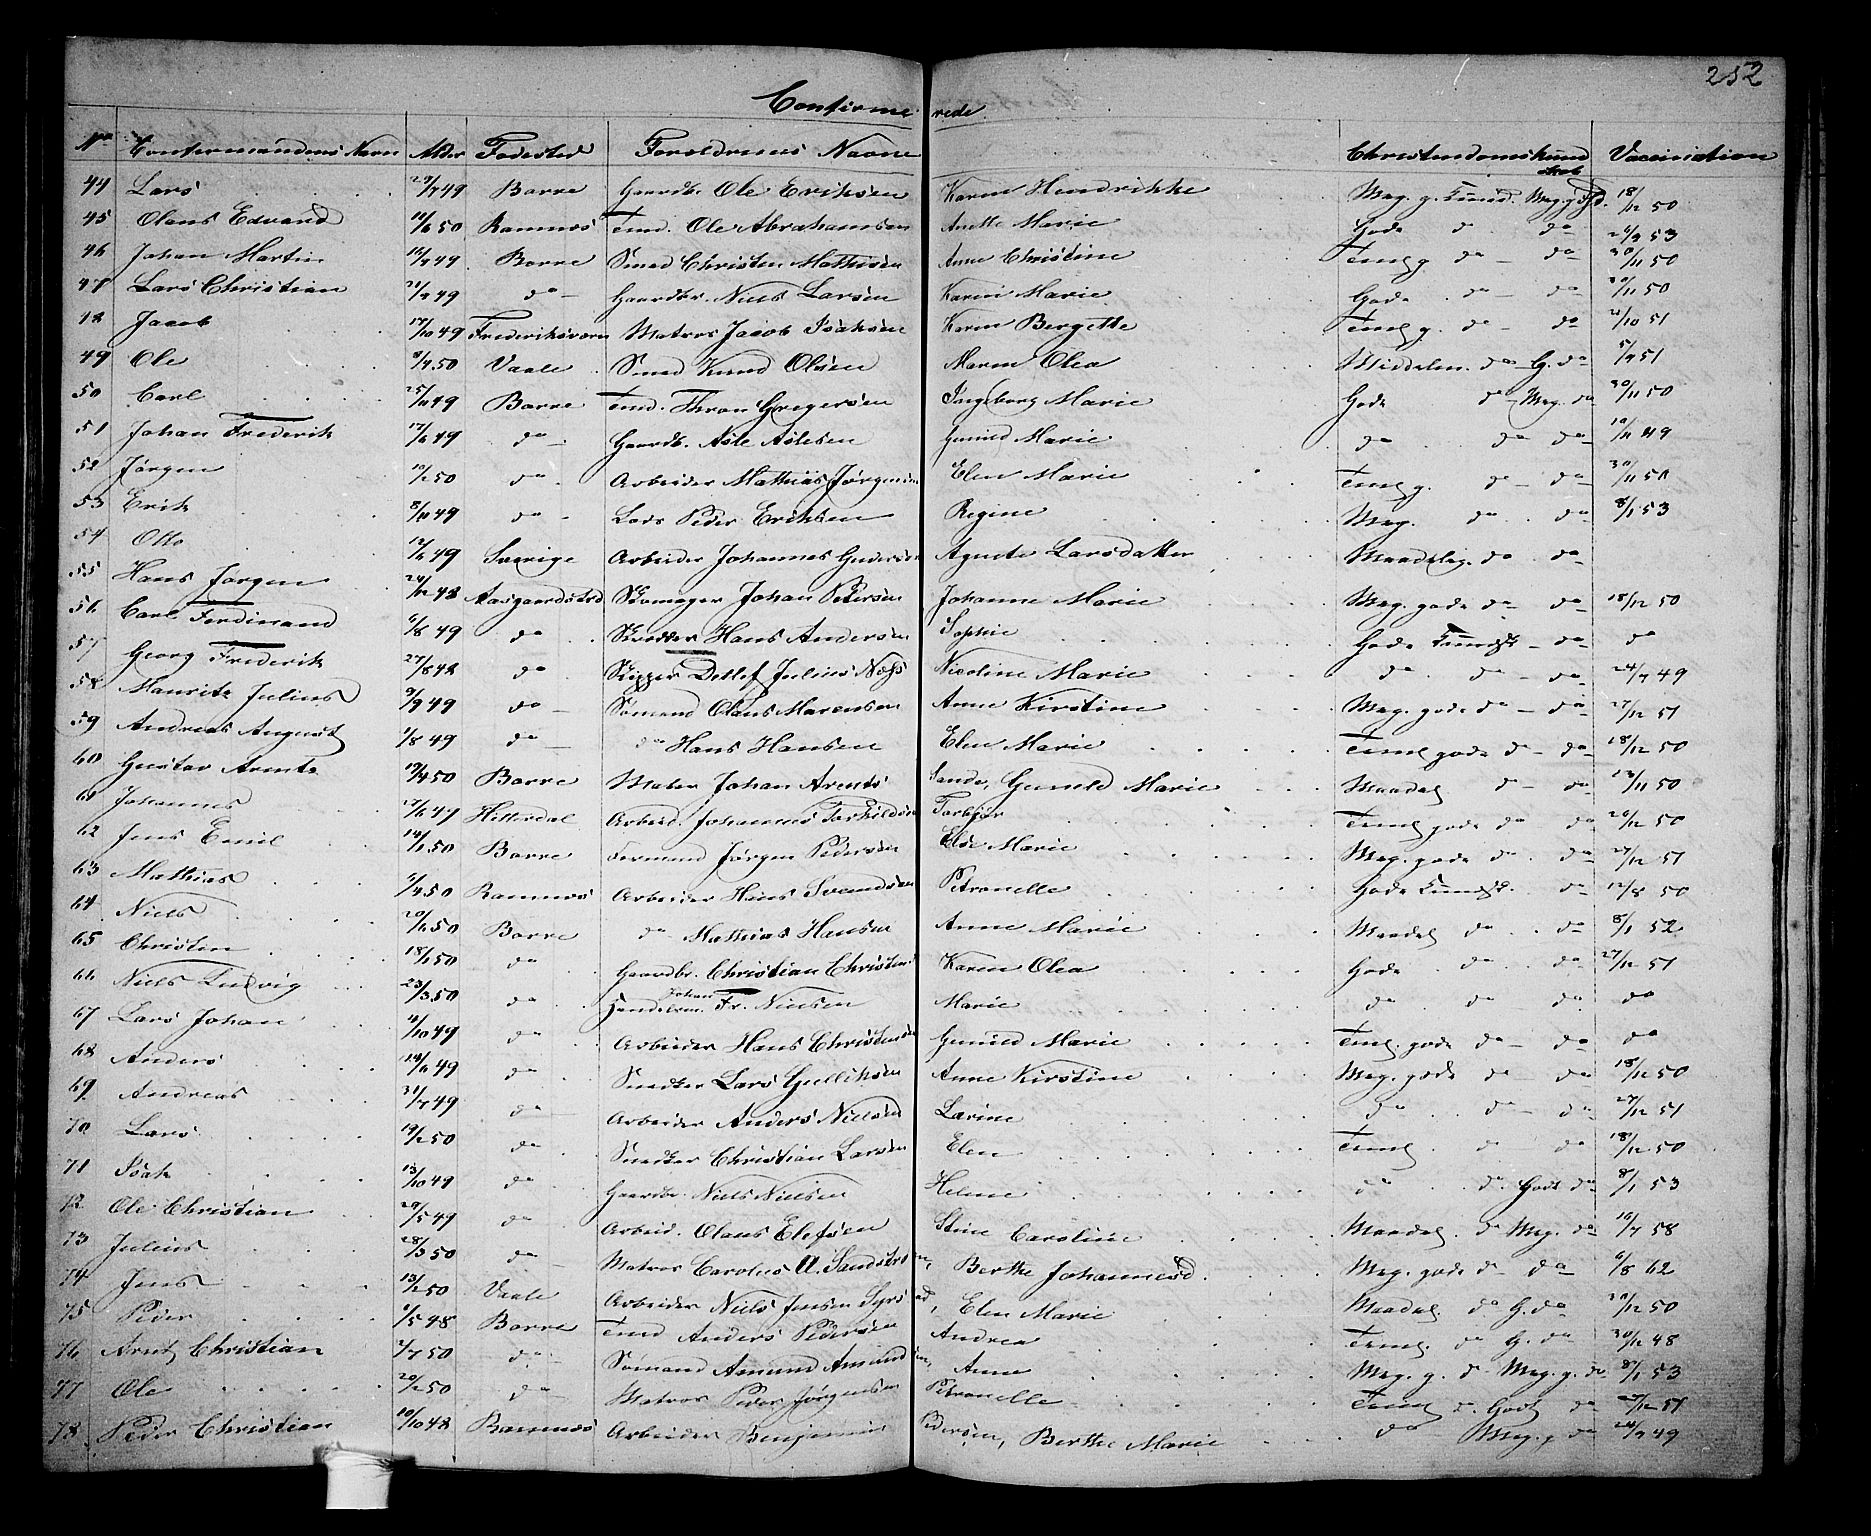 252
Confirmerede
No Confirmandens Navn Alder Fødested Forældrenes Navne Christendomskundskab Vaccination
44 Lars 27/7 49 Borre Gaardb. Ole Eriksen Karen Hendrikke Meg. g. Kundsk. Meg. g. Fl. 18/12 50
45 Olaus Edvard 14/6 50 Ramnæs Tmd. Ole Abrahamsen Anette Marie Gode do do 26/9 53
46 Johan Martin 14/7 49 Borre Smed Christen Mathisen Anne Christine Teml. g. do do 30/11 50
47 Lars Christian 21/9 49 do Gaardbr. Niels Larsen Karen Marie Gode do do 30/11 50
48 Jacob 17/10 49 Frederiksværn Matros Jacob Isaksen Karen Bergette Teml. g. do do 21/10 51
49 Ole 8/4 50 Vaale Smed Knud Olsen Maren Olea Middelm. do G. do 5/9 51
50 Carl 25/11 49 Borre Tmd. Thron Gregersen Ingeborg Marie Gode do Meg. do 30/11 50
51 Johan Frederik 17/6 49 do Gaardb. Asle Aslesen Gunild Marie do do do 10/11 49
52 Jørgen 10/2 50 do Arbeider Mathias Jørgensen Elen Marie Teml. g. do do 30/11 50
53 Erik 8/11 49 do Lods Peder Eriksen Regine Meg. do do 8/1 53
54 Otto 12/6 49 Sverige Arbeider Johannes Gudersen Agnete Larsdatter Maadelig. do do
55 Hans Jørgen 24/12 48 Aasgaardstrd Skomager Johan Petersen Johanne Marie Meg. gode do do 18/12 50
56 Carl Ferdinand 6/8 49 do Snedker Hans Andersen Sophie Gode Kundsk. do do
57 Georg Frederik 27/8 48 do Skipper Detlef Julius Nejs Nicoline Marie do do do 24/7 49
58 Mauritz Julius 9/9 49 do Sømand Olaus Marensen Anne Kirstine Meg. gode do do 27/12 51
59 Andreas August 1/8 49 do do Hans Hansen Elen Marie Teml. gode do do 18/12 50
60 Gustav Arents 19/4 50 Borre Maler Johan Arents Sande, Gunild Marie Maadel. do do 23/11 50
61 Johannes 17/6 47 Hitterdal Arbeid. Johannes Torkildsen Torbjør Teml. gode do do 20/12 50
62 Jens Emil 14/1 50 Borre Formand Jørgen Pedersen Else Marie Meg. gode do do 27/12 51
63 Mathias 1/4 50 Ramnæs Arbeider Hans Svendsen Petronelle Gode Kundsk. do 12/8 50
64 Niels 20/1 50 Borre do Mathias Hansen Anne Marie Maadel. do do 8/1 52
65 Christen 18/1 50 do Gaardbr. Christian Christens. Karen Olea Gode do do 27/12 51
66 Niels Ludvig 23/3 50 do Handelsm. Johan Fr. Nielsen Marie do do do do
67 Lars Johan 11/10 49 do Arbeider Hans Christensen Gunild Marie Teml. gode do do do
68 Anders 14/6 49 do Snedker Lars Gulliksen Anne Kirstine Meg. gode do do 18/12 50
69 Andreas 31/7 49 do Arbeider Anders Nielsen Larine do do do 27/12 51
70 Lars 19/2 50 do Snedker Christian Larsen Elen Teml. do do 18/12 50
71 Isak 13/10 49 do Gaardbr. Niels Nielsen Helene do do Godt do 8/1 53
72 Ole Christian 29/5 49 do Arbeid. Olaus Elefsen Stine Caroline Maadel. do Meg. do 16/7 58
73 Julius 28/3 50 do Matros Carolus A. Sandstrøm, Berthe Johannesd. Meg. gode do do 6/8 62
74 Jens 13/2 50 Vaale Arbeider Niels Jensen Elen Marie Maadel. do G. do 20/12 50
75 Peder 6/5 48 Borre Tmd Anders Pedersen Andrea Teml. do G. do 30/12 48
76 Arnt Christian 2/7 50 do Sømand Amund Amundsen, Anne Meg. g. do Meg. g. do 8/1 53
77 Ole 20/2 50 do Matros Peder Jørgensen Petronelle Teml. do Godt do 27/12 51
78 Peder Christian 10/10 48 Ramnæs Arbeider Benjamin Pedersen, Berthe Marie do Meg. g. do 24/7 49